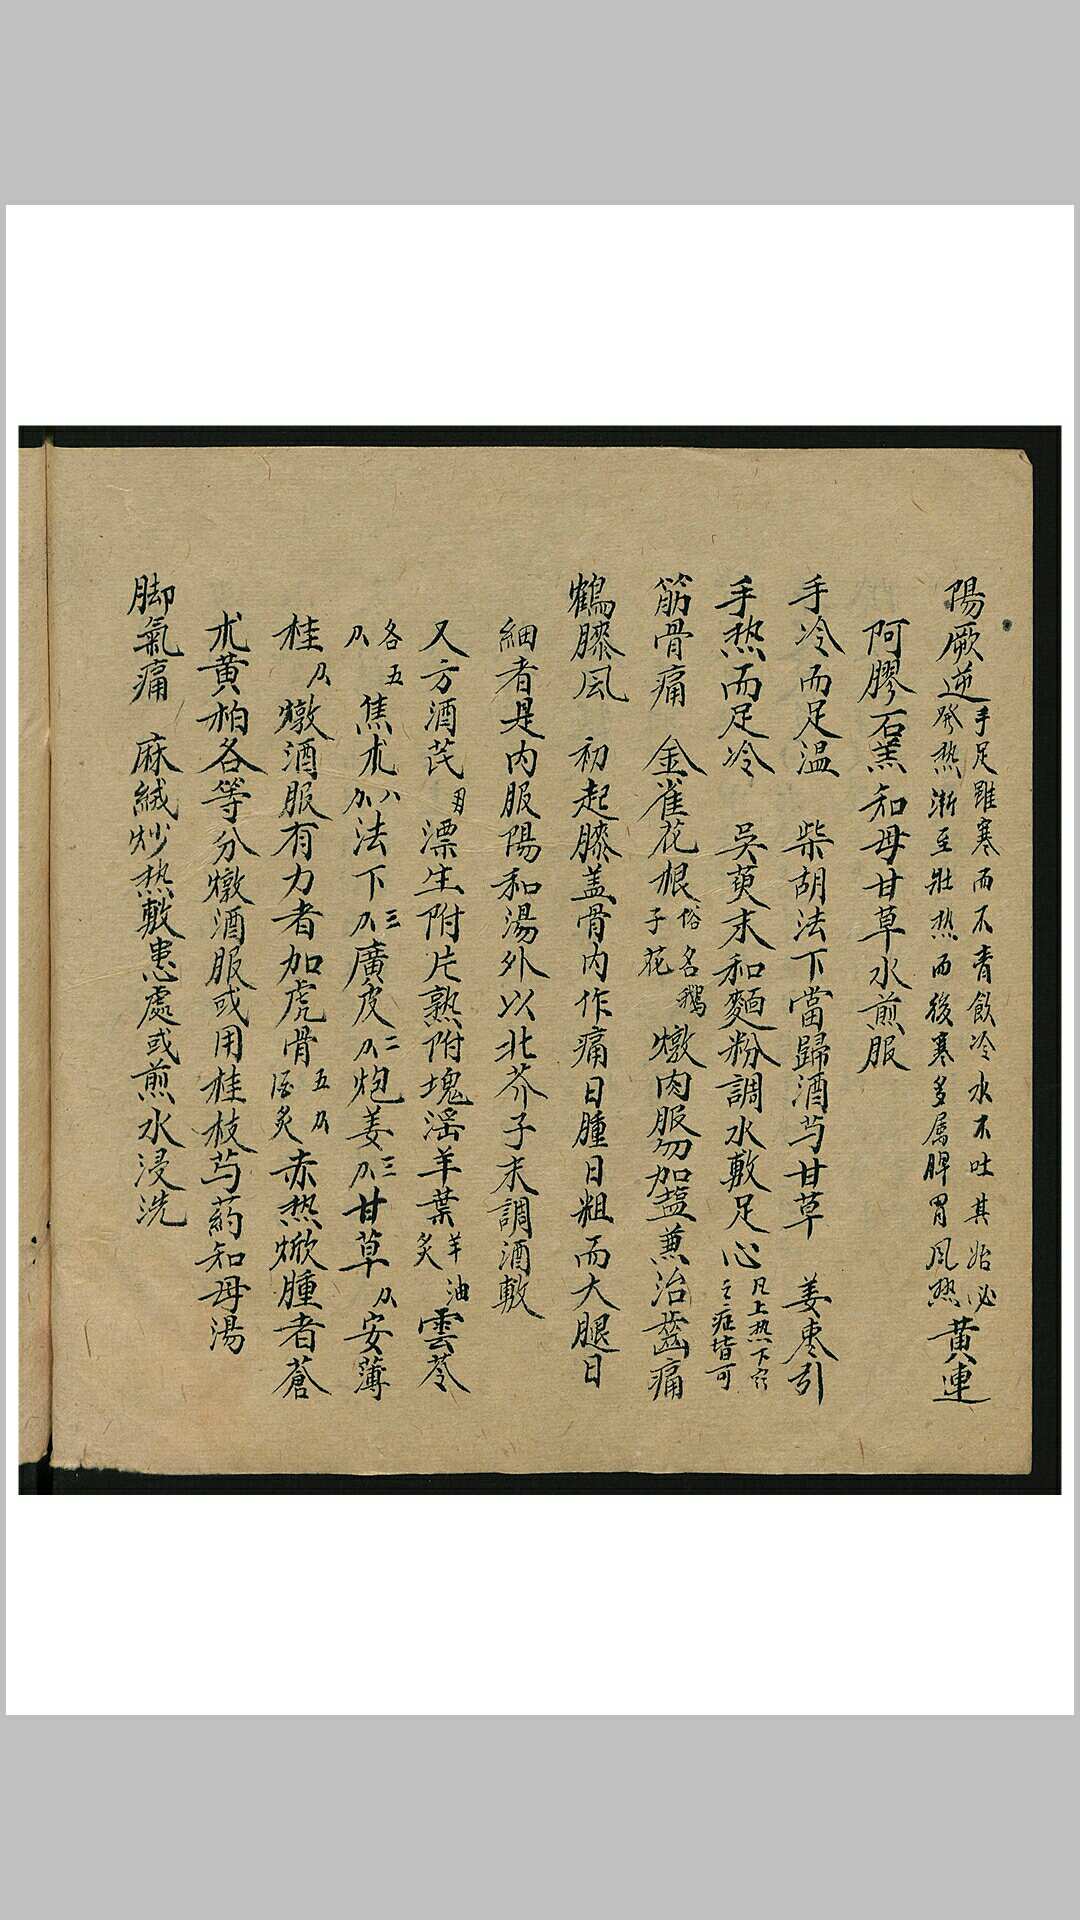 陽厥逆手足雖寒而不青飲冷水不吐其始必發热漸至壯热而後寒多属脾胃风热黄連
阿膠石羔知母甘草水煎服
手冷而足温 柴胡法下當歸酒芍甘草 姜枣引
手热而足冷 吳萸末和麵粉調水敷足心凡上热下寒之症皆可
筋骨痛 金雀花根俗名鵝子花燉肉服勿加盐兼治齒痛
鶴膝风 初起膝盖骨内作痛日腫日粗而大腿日
細者是内服陽和湯外以北芥子末調酒敷
又方酒芪漂生附片熟附塊滛羊葉羊油炙雲苓
各五焦朮八法下三廣皮二炮姜三甘草安薄
桂燉酒服有力者加虎骨五酒炙赤热焮腫者蒼
朮黄柏各等分燉酒服或用桂枝芍葯知母湯
脚氣痛 麻絨炒热敷患處或煎水浸洗